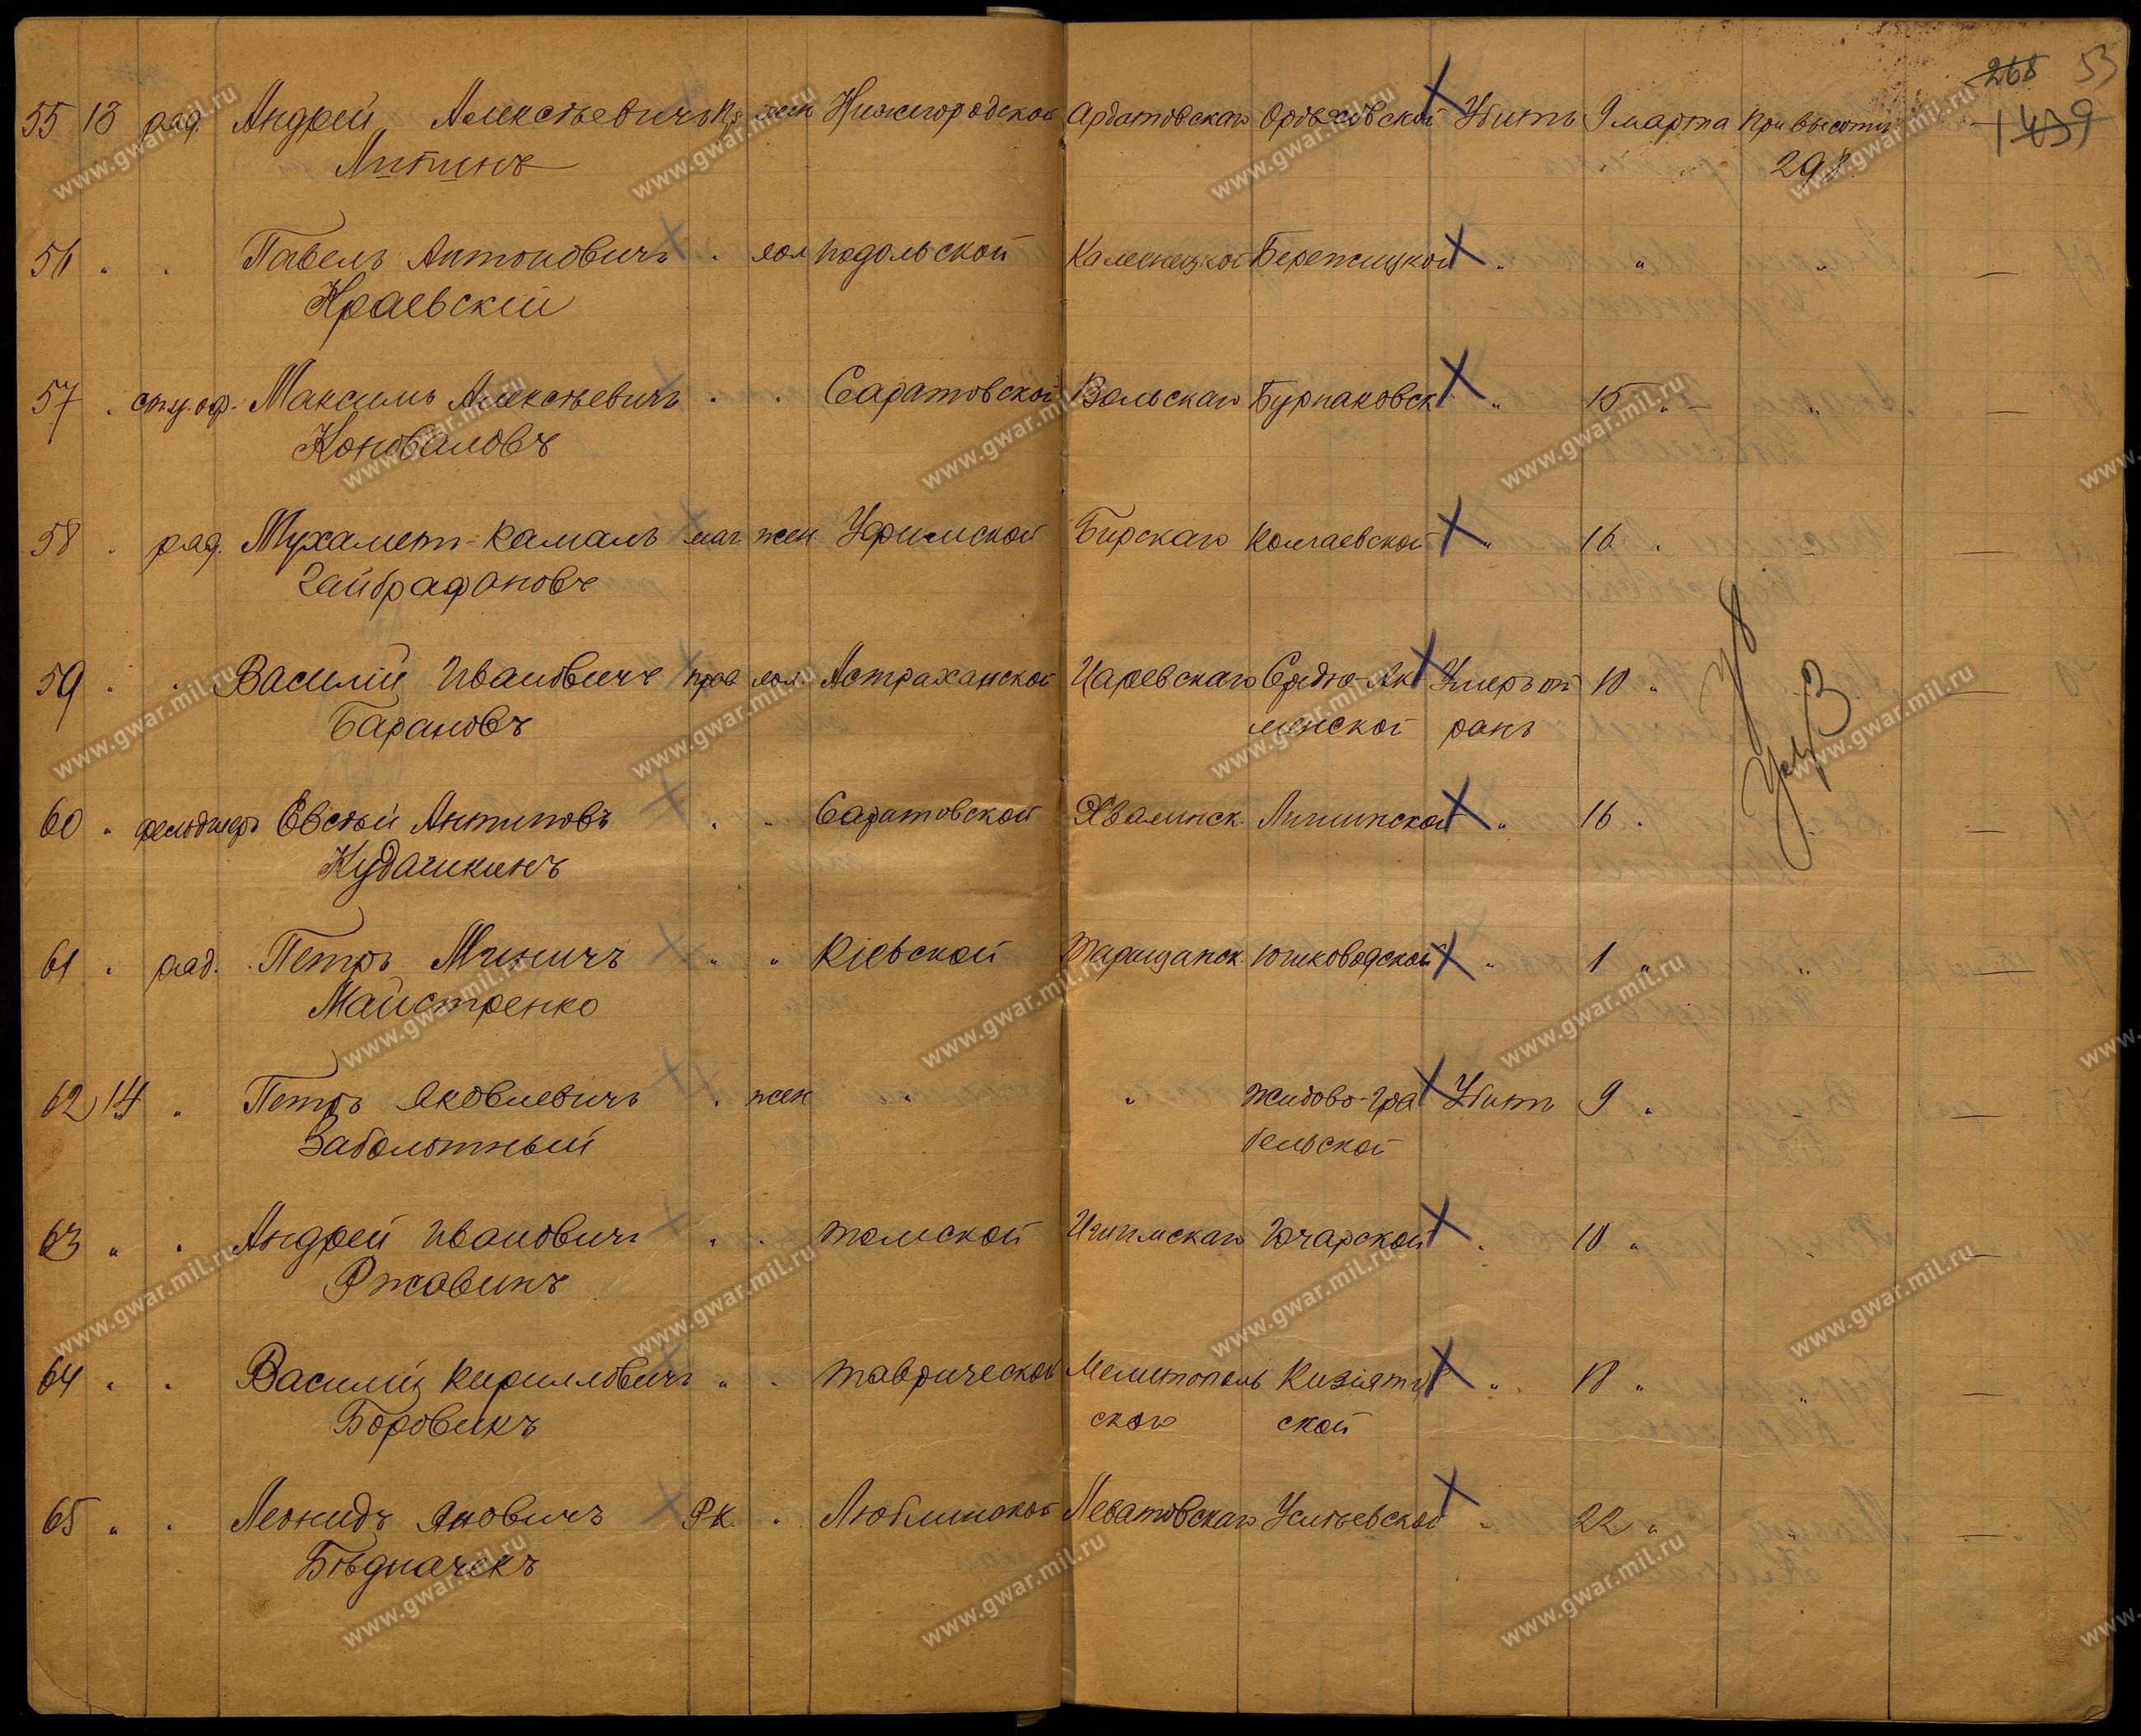 268 53
1439
55 13 ряд. Андрей Алексѣевичъ Пр жен Нижегородской Ардатовскаго Убитъ 9 марта при высотѣ
Липинъ 298
56 " " Павелъ Антоновичъ " хол Подольской Каменецкой Бережецкой " " "
Краевскій
57 " ст.у.оф. Максимъ Алексѣевичъ " " Саратовской Вольскаго Бурнаковск " 15 " "
Коноваловъ
58 " ряд. Мухамет-Камалъ маг жен Уфимской Бирскаго " 16 " "
59 " " Василій Ивановичъ прав хол. Астраханской Царевскаго Средне-Ах Умеръ от 10 "
Барановъ ранъ
60 " фельдшеръ Евсѣй Антиповъ " " Саратовской Хвалынск. " 16 "
Кудашкинъ
61 " ряд. Петръ Миничъ " " Кіевской Таращанск. Юшководской " 1 " "
Майстренко
62 14 " Петръ Яковлевичъ " жен " " Жидово-Гре Убитъ 9 " "
Заболотный бельской
63 " " Андрей Ивановичъ " " Томской Ишимскаго " 10 " "
Ржавинъ
64 " " Василій Кирилловичъ " " Таврической Мелитополь " 18 " "
Боровикъ скаго ской
65 " " Леонидъ Яновичъ Р.К. " Люблинской " 22 " "
Бѣдначекъ
www.gwar.mil.ru